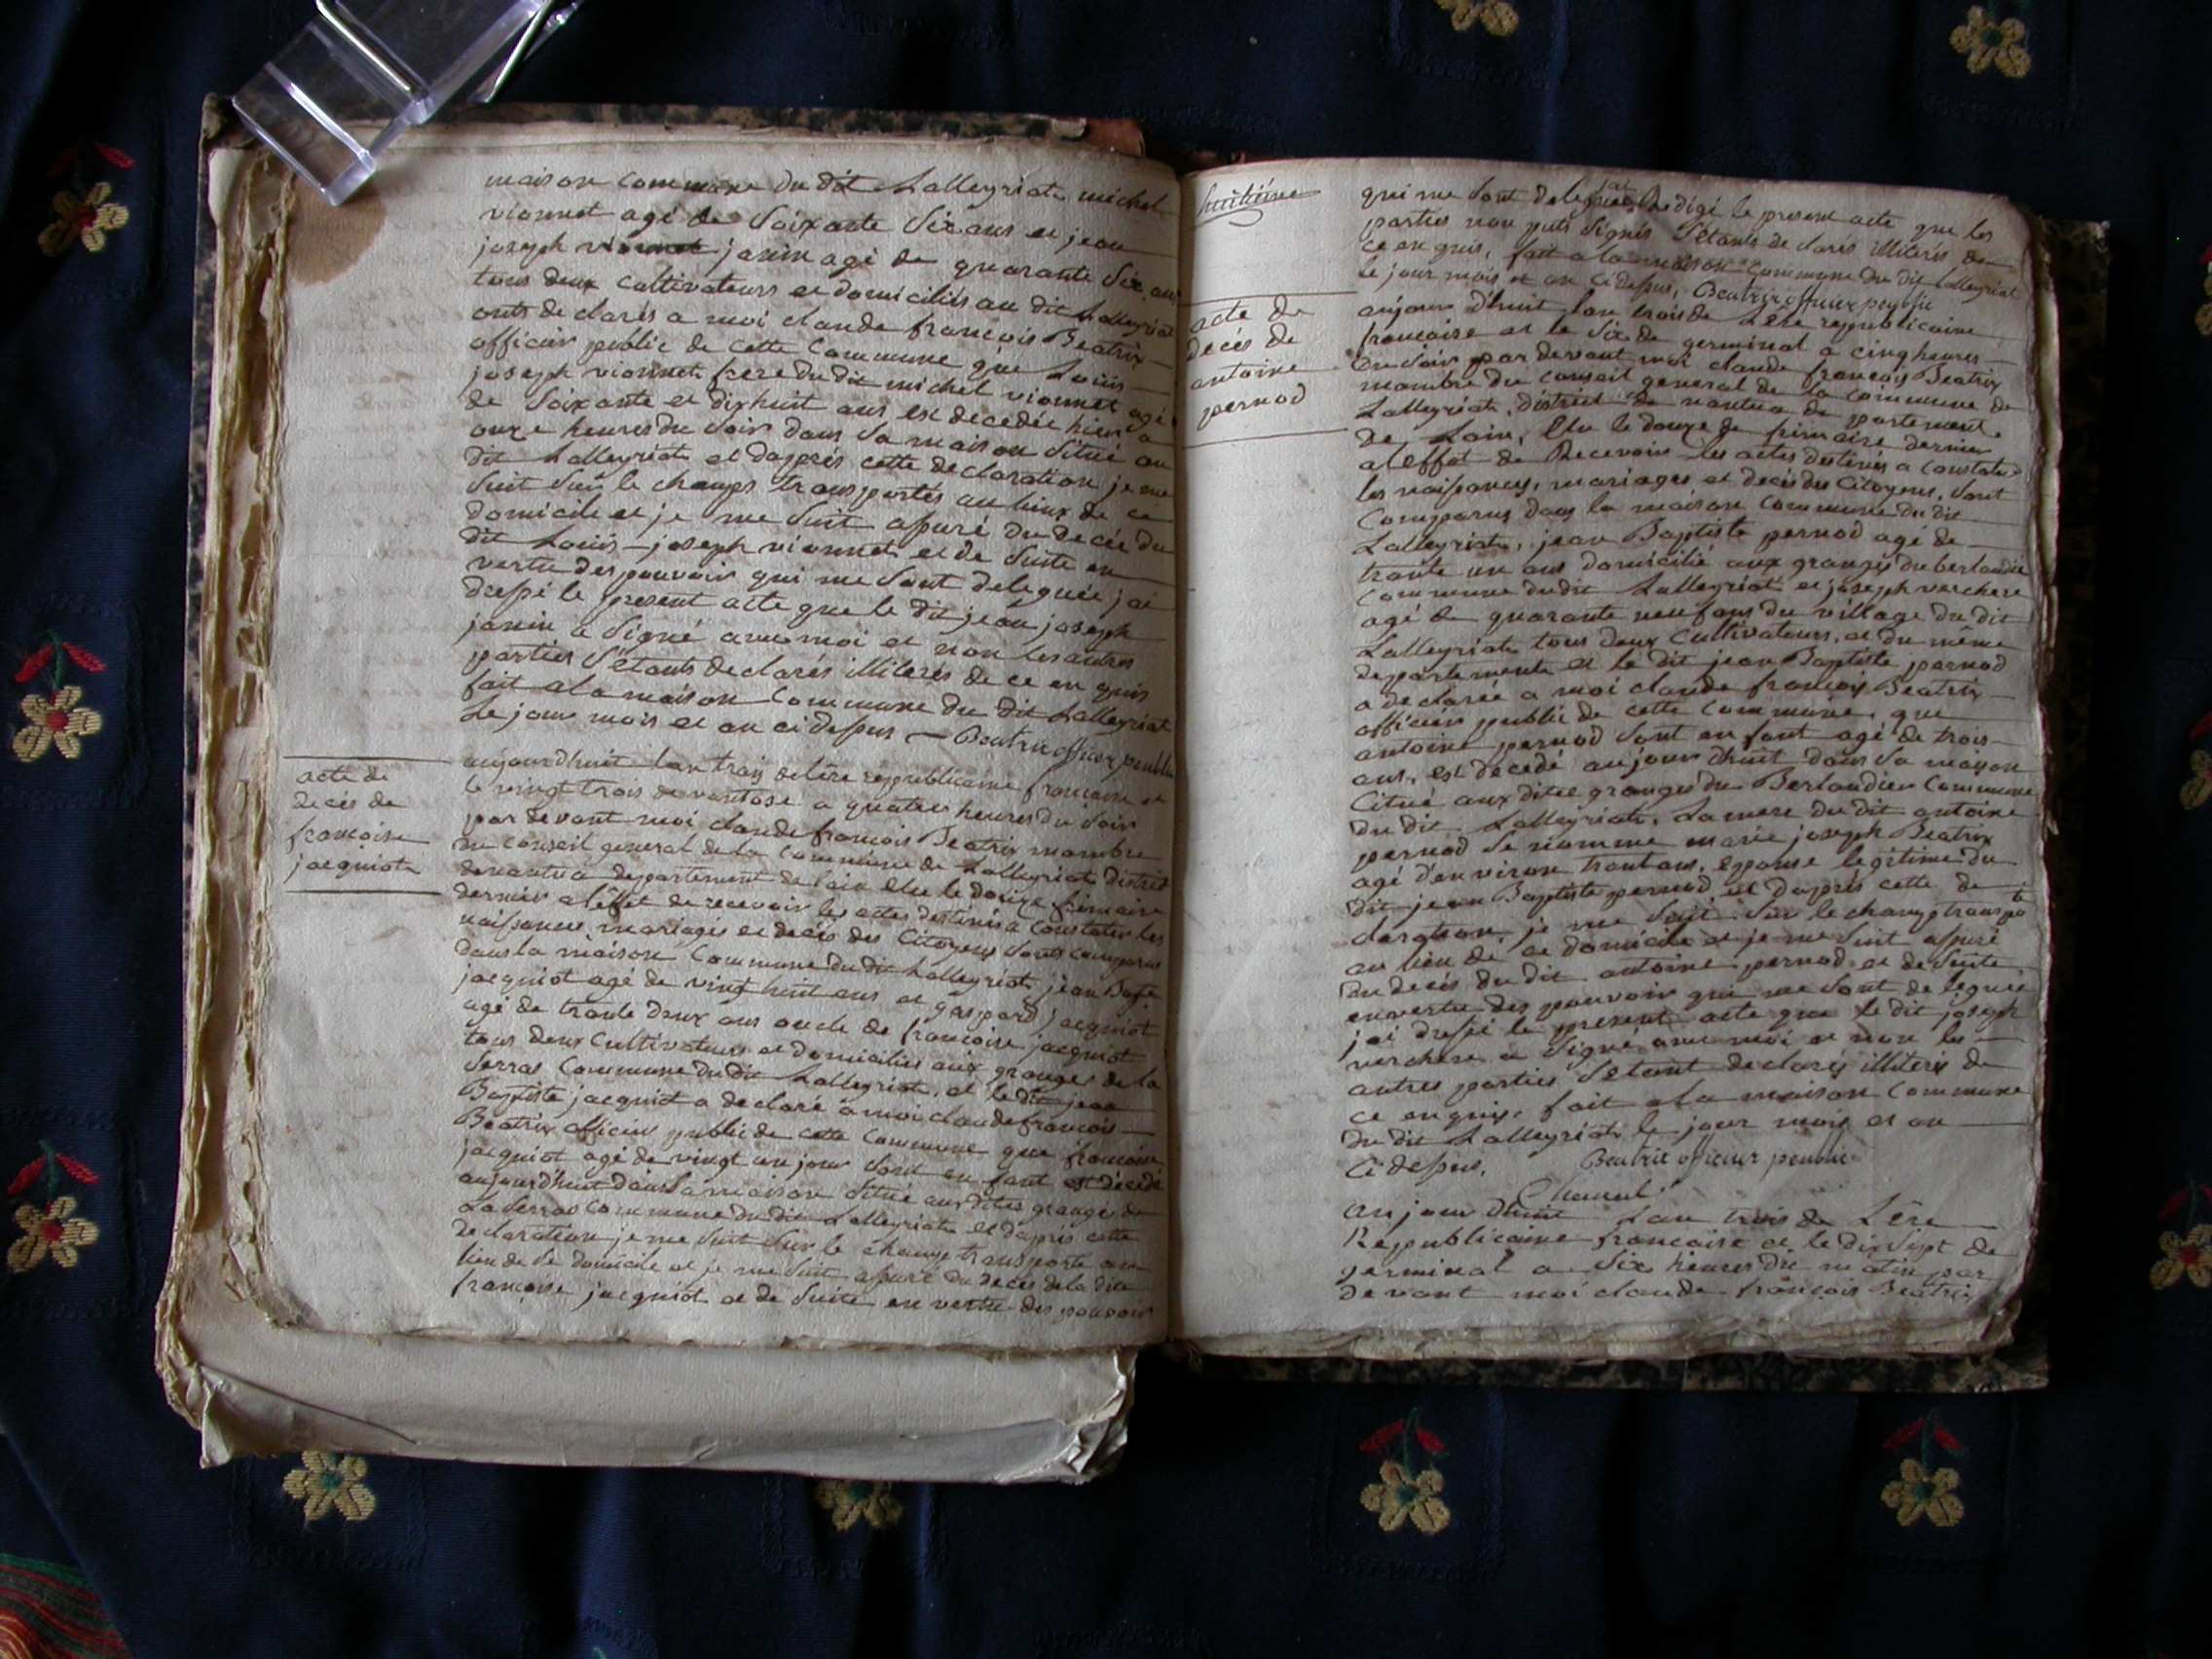 maison commune du dit Lalleyriat michel
vionnet agé de Soixante Six ans et jean
joseph vionnet janin agé de quarante Six ans
tous deux cultivateurs et domiciliés au dit Lalleyriat
onts declarés a moi claude francois Beatrix
officier public de cette Commune que Louis
joseph vionnet frere du dit michel vionnet agé
de Soixante et dixhuit ans est decedée hier a
onze heures du Soir dans Sa maison Situé au
dit Lalleyriat et daprés cette declaration je me
Suit Sur le champs transportés au lieux de ce
domicile et je me Suit assuré du decée du
dit Louis joseph vionnet et de Suite en
vertu des pouvoir qui me Sont deleguée jai
dressé le present acte que le dit jean joseph
janin a Signé avec moi et non les autres
parties S'étants declarés illiterés de ce en quis
fait a la maison Commune du dit Lalleyriat
Le jour mois et an ci dessus Beatrix officier peublic
acte de
decés de
francoise
jacquiot
aujourdhuit lan trois de lére republicaine francaise et
le vingt trois de ventose a quatre heures du Soir
par devant moi claude francois Beatrix mambre
du Conseil general de la Commune de Lalleyriat district
de nantua departement de lain elue le douze frimaire
dernier a léffet de recevoir les actes destinés a Constater les
naissances mariages et decés des Citoyens Sonts comparus
dans la maison Commune du dit Lalleyriat jean Bapte
jacquiot agé de vingt huit ans et gaspard jacquiot
agé de trante deux ans oncle de francoise jacquiot
tous deux Cultivateurs et domiciliés aux granges de la
Serras Commune du dit Lalleyriat, et le dit jean
Baptiste jacquiot a declaré a moi claude francois
Beatrix officier public de cette Commune que francoise
jacquiot agé de vingt un jour Sont en fant est decedé
aujourdhuit dans Sa maison Situé aux dites granges de
La Serras Commune du dit Lalleyriat et daprés cette
declaration je me Suit Sur le champ transporté au
lieu de Se domicile et je me Suit assuré du decés de la dite
francoise jacquiot et de Suite en vertu des pouvoir
huitiéme
qui me Sont deleguée jai Redigé le present acte que les
parties non puts Signés S'étants declarés illiterés de
ce en quis, fait a la maison Commune du dit Lalleyriat
le jour mois et an ci dessus, Beatrix officier peublic
acte de
decés de
antoine
pernod
aujour dhuit lan trois de Lére republicaine
francaise et le Six de germinal a cinq heures
du Soir par devant moi claude francois Beatrix
mambre du Conseil general de la Commune de
Lalleyriat, district de nantua de partement
de Lain, elu le douze de frimaire dernier
a l effet de Recevoir les actes destinés a constater
les naissances, mariages et decés des Citoyens, Sont
Comparus dans la maison Commune du dit
Lalleyriat, jean Baptiste pernod agé de
trante un ans domicilié aux granges du berlandier
Commune du dit Lalleyriat et joseph verchere
agé de quarante neuf ans du village du dit
Lalleyriat tous deux Cultivateurs, et du même
departement et le dit jean Baptiste pernod
a declarée a moi claude francois Beatrix
officier public de cette Commune, que
antoine pernod Sont en fant agé de trois
ans, est decedé aujour dhuit dans Sa mayson
Citué aux dites granges du Berlandier Commune
du dit Lalleyriat, La mere du dit antoine
pernod Se nomme marie joseph Beatrix
agé d'environ trantans, epouse legitime du
dit jean Baptiste pernod, et daprés cette de
claration, je me Suit Sur le champ transpté
au lieu de ce domicile et je me Suit assuré
du decés du dit antoine pernod et de Suite
en vertu des pouvoir qui me Sont deleguée
jai dressé le present acte que le dit joseph
verchere a Signé avec moi et non les
autres parties S'etant declarés illiterés de
ce enquis, fait a la maison Commune
du dit Lalleyriat le jour mois et an
Ci dessus, Beatrix officier peublic
aujour dhuit Lan trois de Lére
Republicaine francaise et le dix Sept de
germinal a Six heures du matin par
devant moi claude francois Beatrix